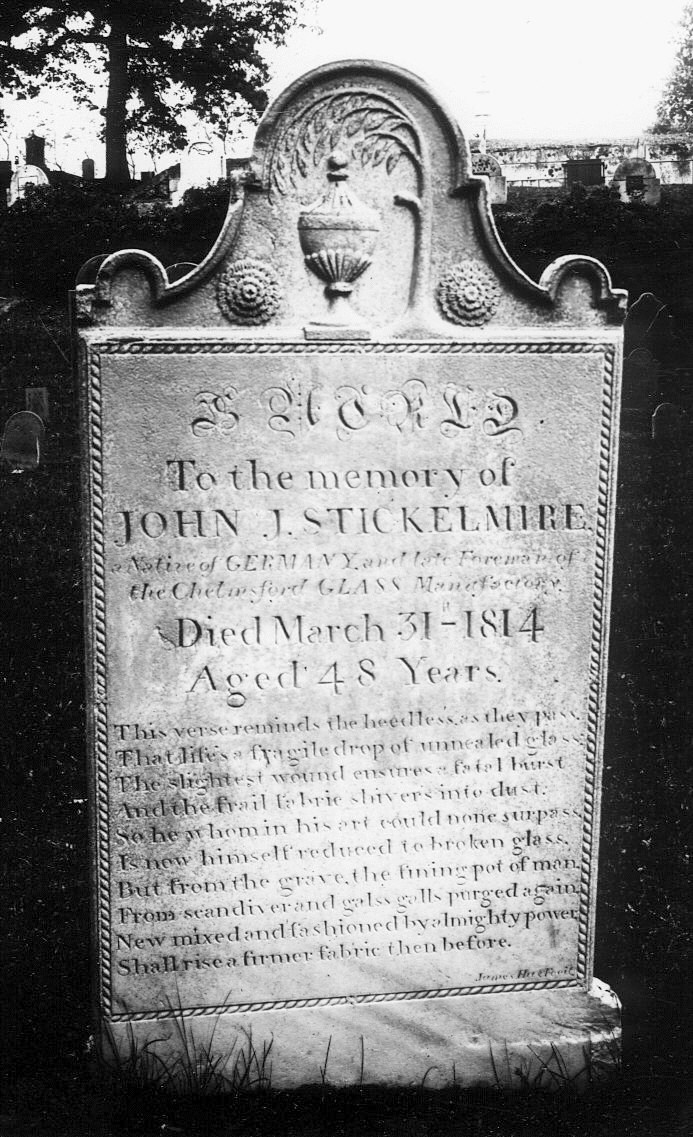 SACRED
To the memory of
JOHN J. STICKELMIRE
a Native of GERMANY, and late Foreman of
the Chelmsford GLASS Manufactory.
Died March 31st 1814
Aged 48 Years.
This verse reminds the heedless, as they pass,
That life's a fragile drop of unnealed glass;
The slightest wound ensures a fatal burst
And the frail fabric shivers into dust.
So he whom in his art could none surpass,
Is now himself reduced to broken glass,
But from the grave, the fining pot of man,
From scandiver and galss galls purged again,
New mixed and fashioned by almighty power,
Shall rise a firmer fabric then before.
James